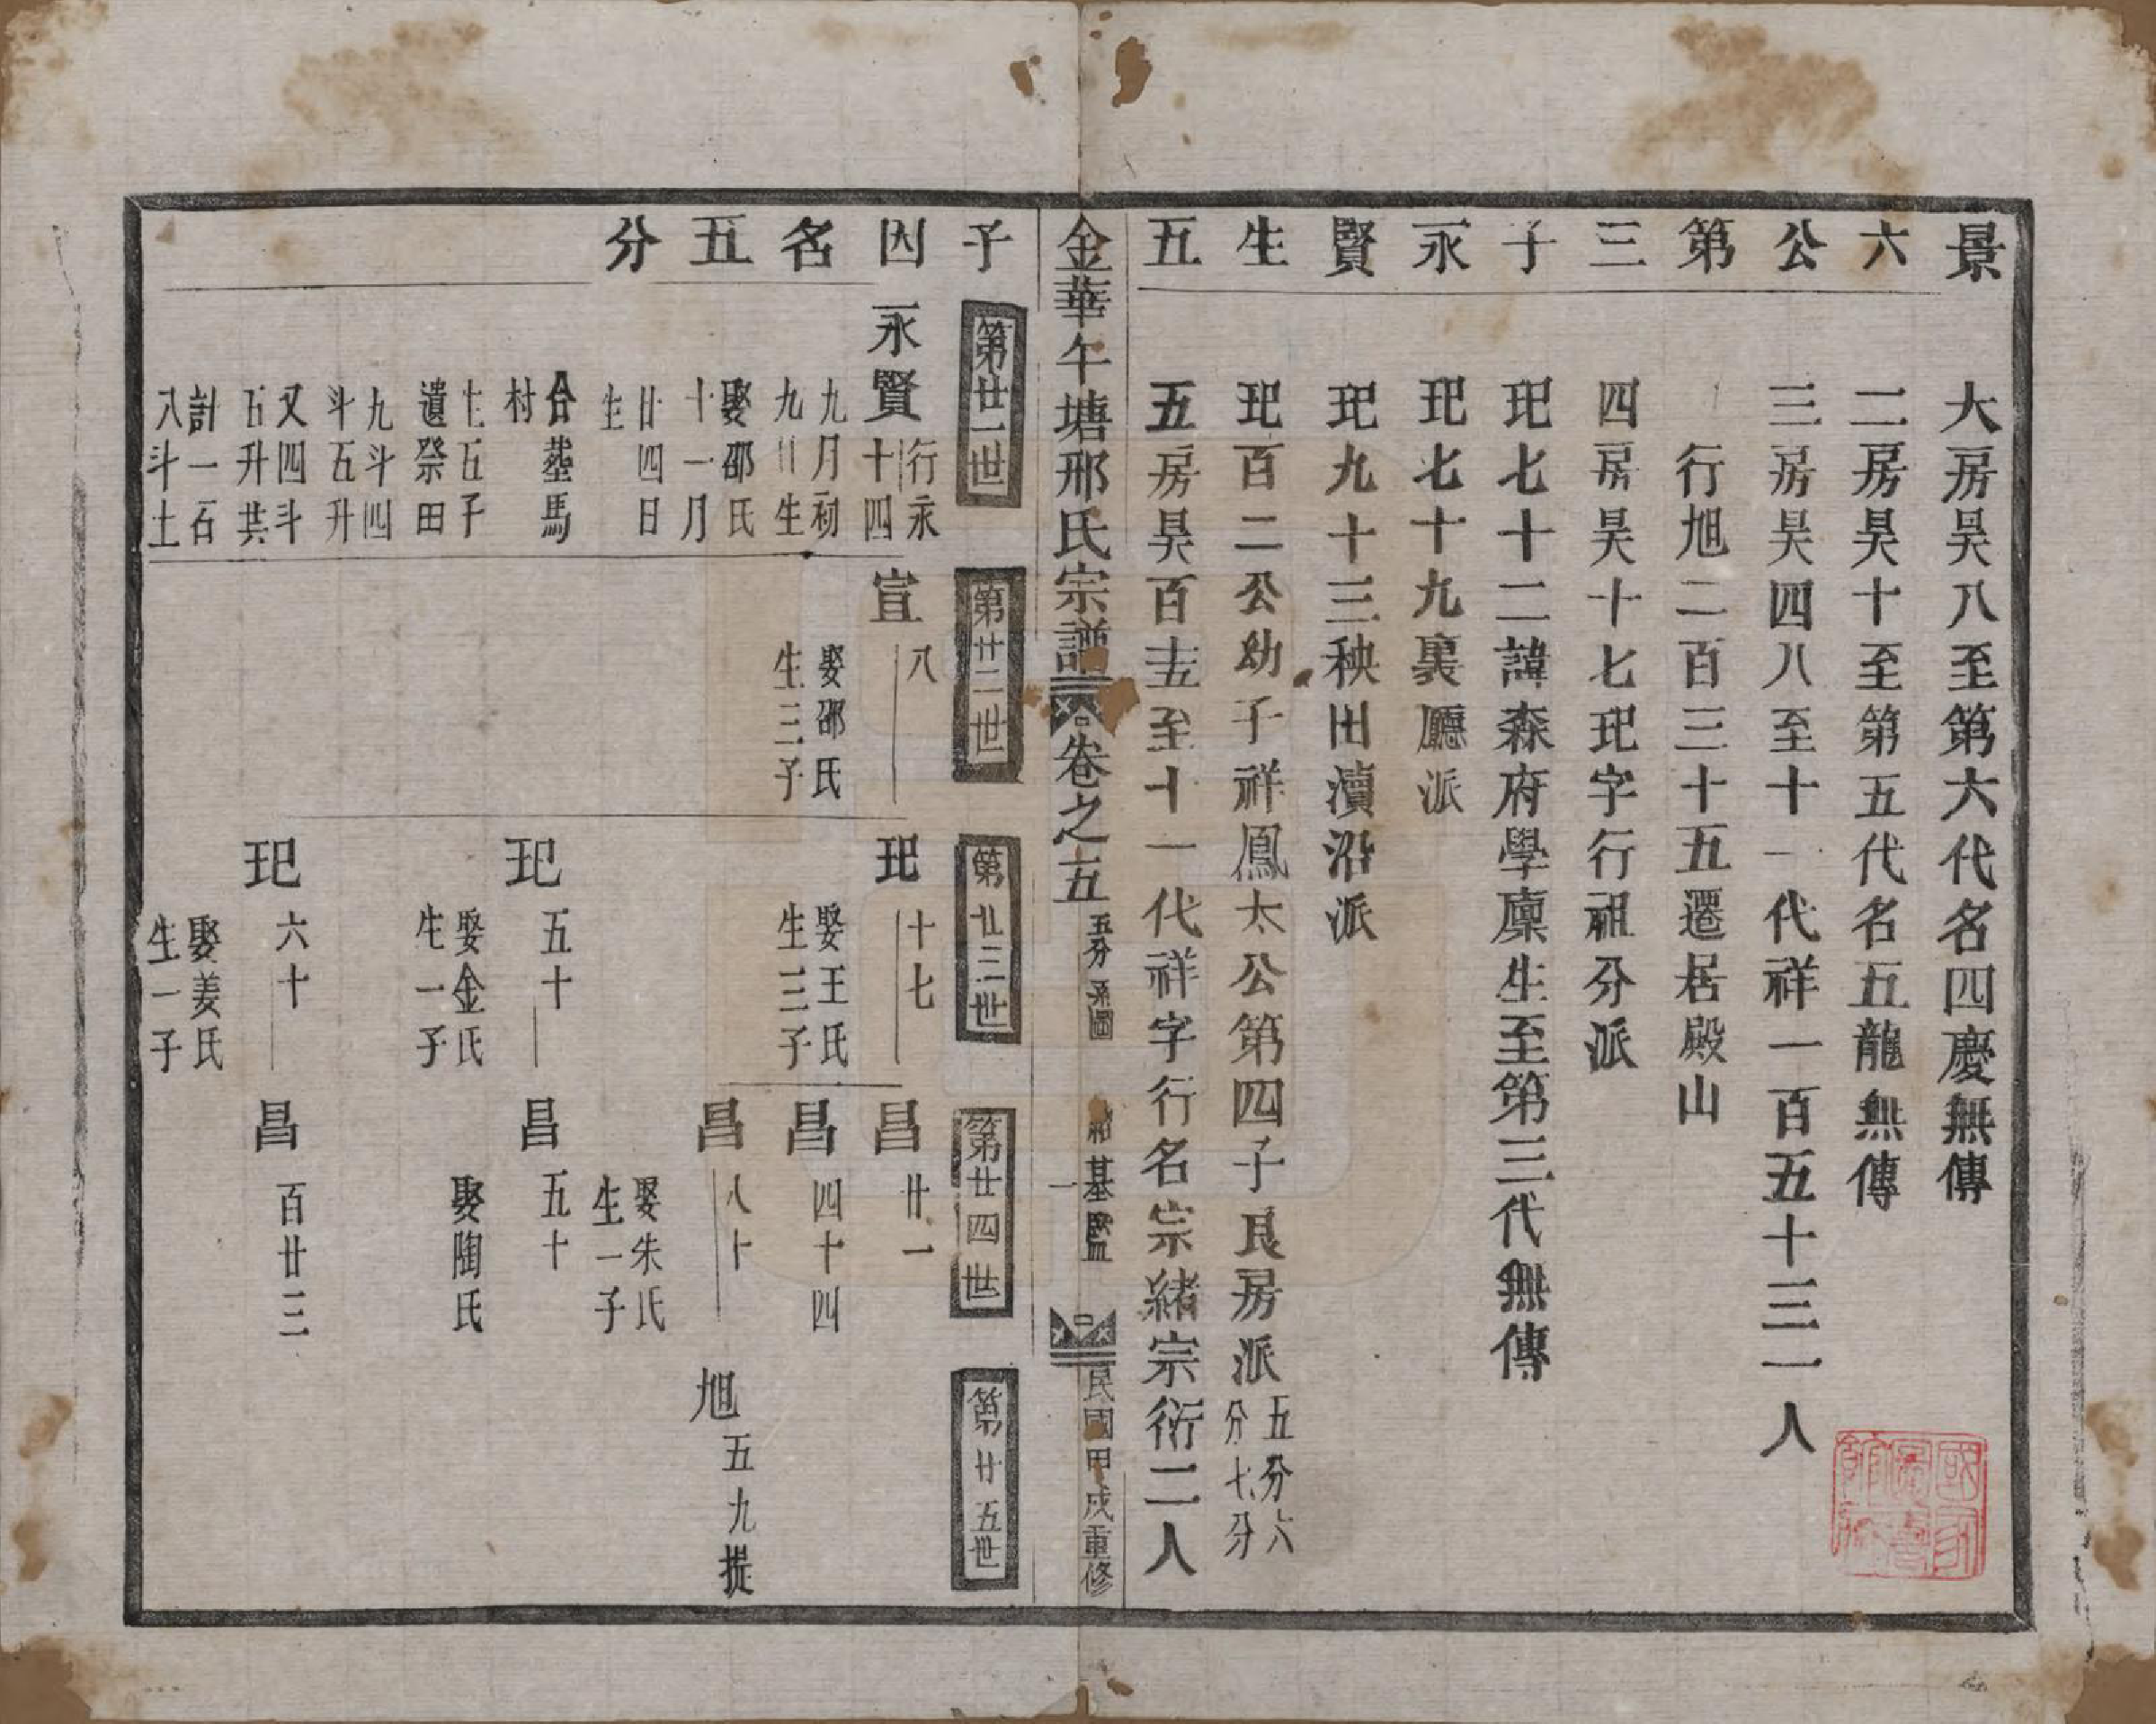 景六公第三子永賢生五
大房昊八至第六代名四慶無傳
二房昊十至第五代名五龍無傳
三房昊四八至十一代祥一百五十三一人
行旭二百三十五遷居殿山
四房昊十七玘字行祖分派
玘七十二諱森府學廩生至第三代無傳
玘七十九裏廳派
玘九十三秧田瀆沿派
玘百二公幼子祥鳳太公第四子良房派
五分六
分七分
五房昊百十五至十一代祥字行名宗緒宗衍二人
金華午塘邢氏宗譜
卷之五
五分系圖
一
裕基堅
民國甲戌重修
子因名五分
第廿一世
第廿二世
第廿三世
第廿四世
第廿五世
永賢
行永
十四
九月初
九日生
娶邵氏
十一月
廿四日
生
合葬馬
村
生五子
遺祭田
九斗四
斗五升
又四斗
五升共
計一石
八斗土
宣
八
娶邵氏
生三子
玘
十七
娶王氏
生三子
玘
五十
娶金氏
生一子
玘
六十
娶姜氏
生一子
昌
廿一
昌
四十四
昌
八十
娶朱氏
生一子
昌
五十
娶陶氏
昌
百廿三
旭
五九提